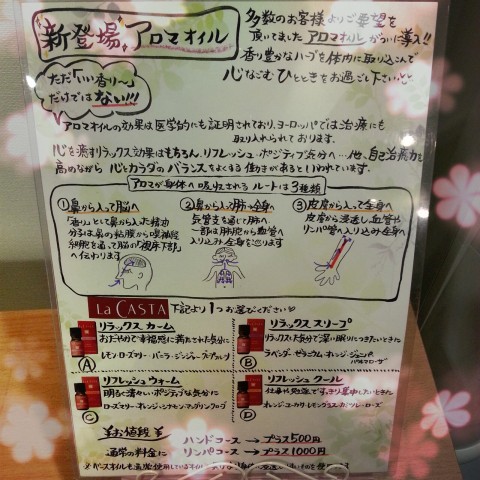 新登場 アロマオイル
多数のお客様よりご要望を
頂いてました アロマオイル がついに導入!!
香り豊かなハーブを体内に取り込んで
心なごむ ひとときをお過ごし下さい
ただ「いい香り〜」
だけではない!!!
アロマオイルの効果は医学的にも証明されており、ヨーロッパでは治療にも
取り入れられております。
心を癒すリラックス効果はもちろん、リフレッシュ・ポジティブな気分へ…他、自己治癒力を
高めながら 心とカラダのバランスをよくする働きがあるといわれています。
アロマが身体へ吸収されるルートは3種類
①鼻から入って脳へ
「香り」として鼻から入った精油
分子は鼻の粘膜から嗅神経
細胞を通って脳の「視床下部」
へ伝わります
②鼻から入って肺→全身へ
気管支を通って肺へ
一部は肺胞から血管へ
入り込み全身を巡ります
③皮膚から入って全身へ
皮膚から浸透し、血管や
リンパ管へ入り込み全身へ
La CASTA 下記より1つお選びください
Ⓐ リラックス カーム
おだやかで幸福感に満たされた気分に
レモン・ローズマリー・バニラ・ジンジャー・
Ⓑ リラックス スリープ
リラックス気分で深い眠りにつきたいときに
ラベンダー・ゼラニウム・オレンジ・
パルマローザ
Ⓒ リフレッシュ ウォーム
明るく清々しいポジティブな気分に
ローズマリー・オレンジ・シナモン・マンダリン・クローブ
Ⓓ リフレッシュ クール
仕事や勉強ですっきり集中したいときに
オレンジ・ユーカリ・レモングラス・
¥お値段¥
通常の料金に
ハンドコース → プラス500円
リンパコース → プラス1000円
※ベースオイルも通常使用しているオイル